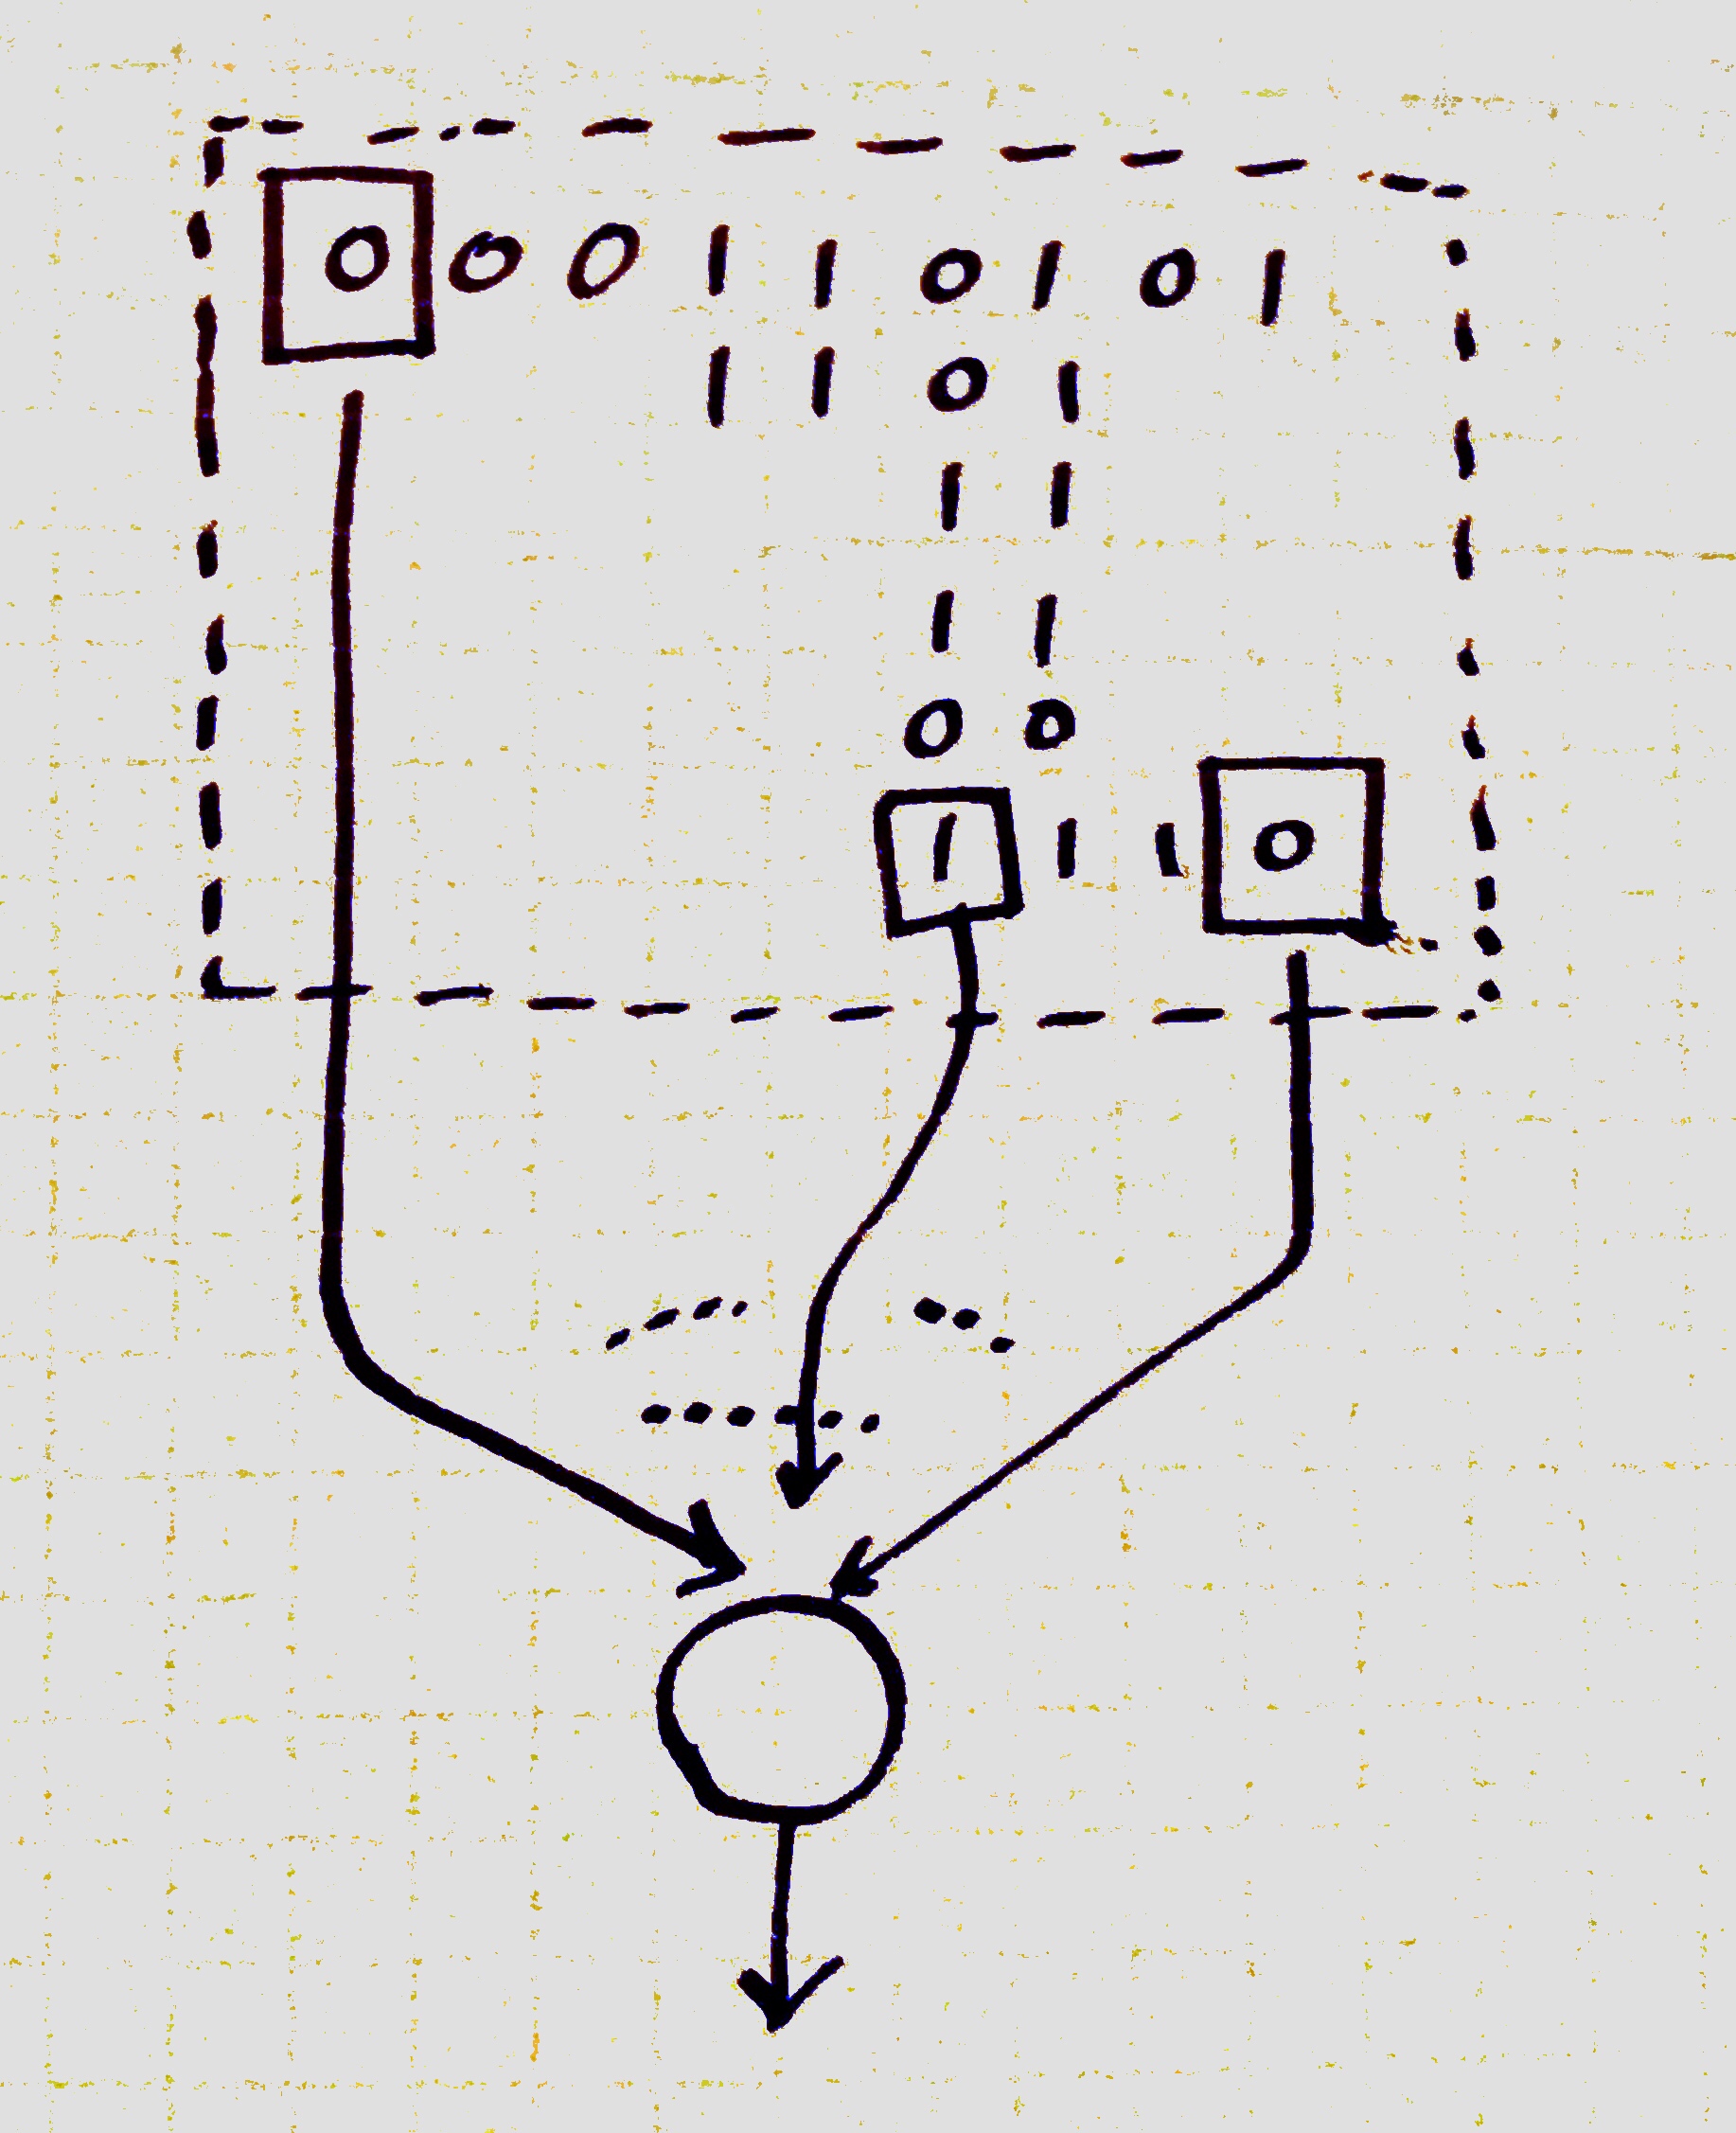 0 0 0 1 1 0 1 0 1
1 1 0 1
1 1
1 1
0 0
1 1 1 0